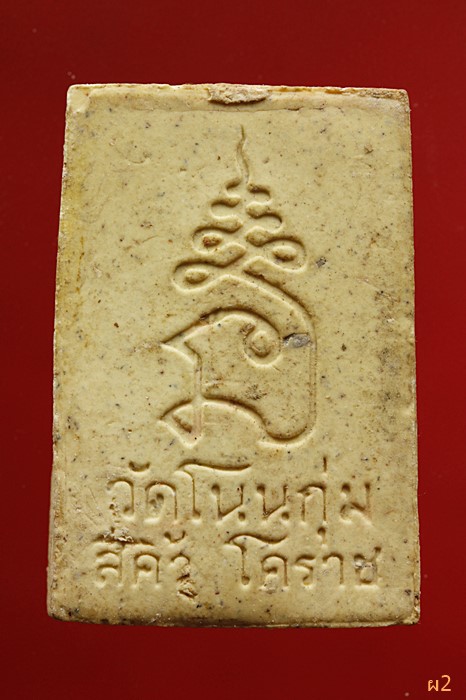 วัดโนนกุ่ม
สีคิ้ว โคราช
ผ2